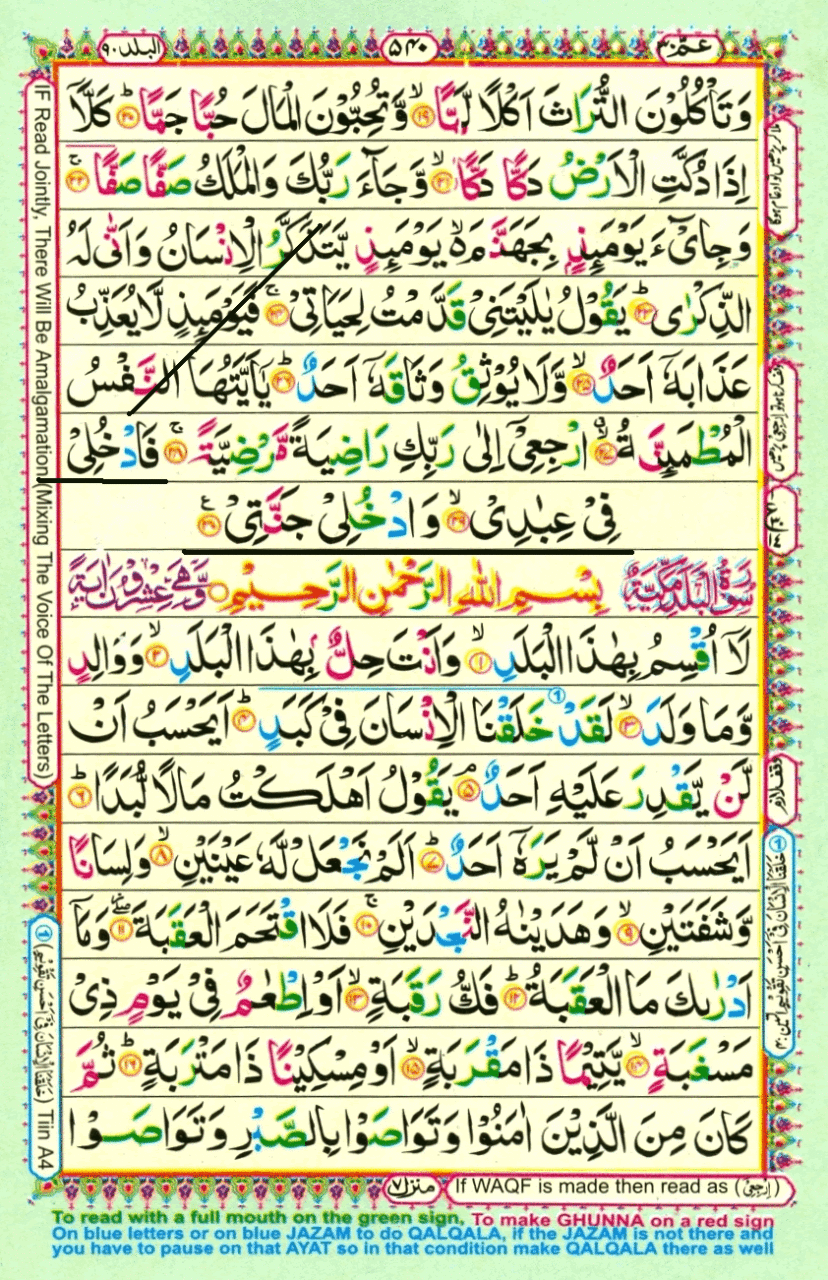 البلد ٩٠
۵۴۰
عمّ ٣٠
وَتَاْكُلُوْنَ التُّرَاثَ اَكْلًا لَّمًّا ۙ﴿۱۹﴾ وَّتُحِبُّوْنَ الْمَالَ حُبًّا جَمًّا ؕ﴿۲۰﴾ كَلَّاۤ
اِذَا دُكَّتِ الْاَرْضُ دَكًّا دَكًّا ۙ﴿۲۱﴾ وَّجَآءَ رَبُّكَ وَالْمَلَكُ صَفًّا صَفًّا ۚ﴿۲۲﴾
وَجِایْٓءَ يَوْمَئِذٍۭ بِجَهَنَّمَ ۙ يَوْمَئِذٍ يَّتَذَكَّرُ الْاِنْسَانُ وَاَنّٰى لَهُ
الذِّكْرٰى ؕ﴿۲۳﴾ يَقُوْلُ يٰلَيْتَنِیْ قَدَّمْتُ لِحَيَاتِیْ ۚ﴿۲۴﴾ فَيَوْمَئِذٍ لَّا يُعَذِّبُ
عَذَابَهٗۤ اَحَدٌ ۙ﴿۲۵﴾ وَّلَا يُوْثِقُ وَثَاقَهٗۤ اَحَدٌ ؕ﴿۲۶﴾ يٰۤاَيَّتُهَا النَّفْسُ
الْمُطْمَئِنَّةُ ۙ﴿۲۷﴾ ارْجِعِیْۤ اِلٰى رَبِّكِ رَاضِيَةً مَّرْضِيَّةً ۚ﴿۲۸﴾ فَادْخُلِیْ
فِیْ عِبٰدِیْ ۙ﴿۲۹﴾ وَادْخُلِیْ جَنَّتِیْ ﴿۳۰﴾
سُوْرَةُ الْبَلَدِ مَكِّيَّةٌ بِسْمِ اللّٰهِ الرَّحْمٰنِ الرَّحِيْمِ وَّهِیَ عِشْرُوْنَ اٰيَةً
لَاۤ اُقْسِمُ بِهٰذَا الْبَلَدِ ۙ﴿۱﴾ وَاَنْتَ حِلٌّۢ بِهٰذَا الْبَلَدِ ۙ﴿۲﴾ وَوَالِدٍ
وَّمَا وَلَدَ ۙ﴿۳﴾ لَقَدْ خَلَقْنَا الْاِنْسَانَ فِیْ كَبَدٍ ؕ﴿۴﴾ اَيَحْسَبُ اَنْ
لَّنْ يَّقْدِرَ عَلَيْهِ اَحَدٌ ۘ﴿۵﴾ يَقُوْلُ اَهْلَكْتُ مَالًا لُّبَدًا ؕ﴿۶﴾
اَيَحْسَبُ اَنْ لَّمْ يَرَهٗۤ اَحَدٌ ؕ﴿۷﴾ اَلَمْ نَجْعَلْ لَّهٗ عَيْنَيْنِ ۙ﴿۸﴾ وَلِسَانًا
وَّشَفَتَيْنِ ۙ﴿۹﴾ وَهَدَيْنٰهُ النَّجْدَيْنِ ۚ﴿۱۰﴾ فَلَا اقْتَحَمَ الْعَقَبَةَ ﴿۱۱﴾ وَمَاۤ
اَدْرٰىكَ مَا الْعَقَبَةُ ؕ﴿۱۲﴾ فَكُّ رَقَبَةٍ ۙ﴿۱۳﴾ اَوْ اِطْعٰمٌ فِیْ يَوْمٍ ذِیْ
مَسْغَبَةٍ ۙ﴿۱۴﴾ يَّتِيْمًا ذَا مَقْرَبَةٍ ۙ﴿۱۵﴾ اَوْ مِسْكِيْنًا ذَا مَتْرَبَةٍ ؕ﴿۱۶﴾ ثُمَّ
كَانَ مِنَ الَّذِيْنَ اٰمَنُوْا وَتَوَاصَوْا بِالصَّبْرِ وَتَوَاصَوْا
منزل ٧
If WAQF is made then read as (اِرْجِعِیْ)
IF Read Jointly, There Will Be Amalgamation (Mixing The Voice Of The Letters)
① (خَلَقْنَا الْاِنْسَانَ فِیْۤ اَحْسَنِ تَقْوِيْمٍ) Tiin A4
To read with a full mouth on the green sign, To make GHUNNA on a red sign
On blue letters or on blue JAZAM to do QALQALA, if the JAZAM is not there and
you have to pause on that AYAT so in that condition make QALQALA there as well